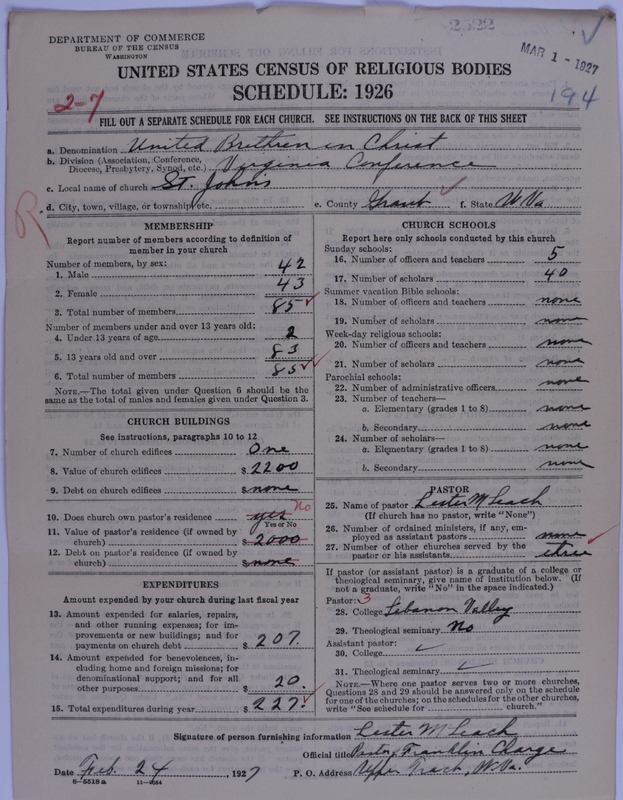 DEPARTMENT OF COMMERCE
BUREAU OF THE CENSUS
WASHINGTON
2522
MAR 1 - 1927
194
UNITED STATES CENSUS OF RELIGIOUS BODIES
SCHEDULE: 1926
2-7
FILL OUT A SEPARATE SCHEDULE FOR EACH CHURCH. SEE INSTRUCTIONS ON THE BACK OF THIS SHEET
a. Denomination United Brethren in Christ
b. Division (Association, Conference, Diocese, Presbytery, Synod, etc.) Virginia Conference
c. Local name of church St. Johns
d. City, town, village, or township, etc. e. County Grant f. State W Va
R
MEMBERSHIP
Report number of members according to definition of
member in your church
Number of members, by sex:
1. Male 42
2. Female 43
3. Total number of members 85
Number of members under and over 13 years old:
4. Under 13 years of age 2
5. 13 years old and over 83
6. Total number of members 85
NOTE.—The total given under Question 6 should be the
same as the total of males and females given under Question 3.
CHURCH BUILDINGS
See instructions, paragraphs 10 to 12
7. Number of church edifices One
8. Value of church edifices $ 2200
9. Debt on church edifices $ none
10. Does church own pastor's residence yes No
Yes or No
11. Value of pastor's residence (if owned by
church) $ 2000
12. Debt on pastor's residence (if owned by
church) $ none
EXPENDITURES
Amount expended by your church during last fiscal year
13. Amount expended for salaries, repairs,
and other running expenses; for im-
provements or new buildings; and for
payments on church debt $ 207.
14. Amount expended for benevolences, in-
cluding home and foreign missions; for
denominational support; and for all
other purposes $ 20.
15. Total expenditures during year $ 227.
CHURCH SCHOOLS
Report here only schools conducted by this church
Sunday schools:
16. Number of officers and teachers 5
17. Number of scholars 40
Summer vacation Bible schools:
18. Number of officers and teachers none
19. Number of scholars none
Week-day religious schools:
20. Number of officers and teachers none
21. Number of scholars none
Parochial schools:
22. Number of administrative officers none
23. Number of teachers—
a. Elementary (grades 1 to 8) none
b. Secondary none
24. Number of scholars—
a. Elementary (grades 1 to 8) none
b. Secondary none
PASTOR
25. Name of pastor Lester M Leach
(If church has no pastor, write "None")
26. Number of ordained ministers, if any, em-
ployed as assistant pastors none
27. Number of other churches served by the
pastor or his assistants three
If pastor (or assistant pastor) is a graduate of a college or
theological seminary, give name of institution below. (If
not a graduate, write "No" in the space indicated.)
Pastor: 3
28. College Lebanon Valley
29. Theological seminary No
Assistant pastor:
30. College
31. Theological seminary
NOTE.—Where one pastor serves two or more churches,
Questions 28 and 29 should be answered only on the schedule
for one of the churches; on the schedules for the other churches,
write "See schedule for church."
Signature of person furnishing information Lester M Leach
Official title Pastor, Franklin Charge
Date Feb. 24, 1927 P. O. Address Upper Tract, W. Va.
8-5518a 11-9554